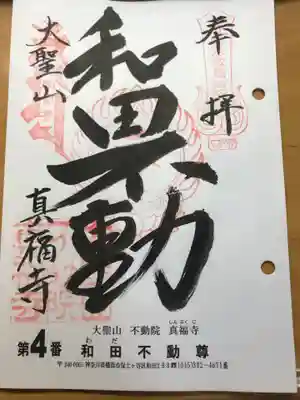 奉拝
和田不動
大聖山
真福寺
大聖山 不動院 真福寺
しんぷくじ
わだ
第4番 和田不動尊